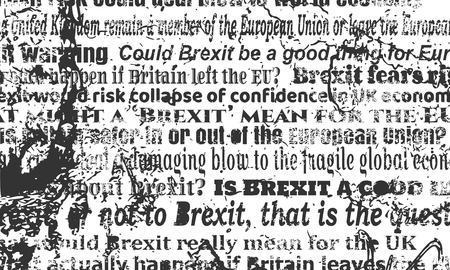 risk could deal blow to world economy
United Kingdom remain a member of the European Union or leave the European
warning Could Brexit be a good thing for Eur
happen if Britain left the EU? Brexit fears ri
exit would risk collapse of confidence in UK econom
AT MIGHT A 'BREXIT' MEAN FOR THE EU
is safer in or out of the European Union?
damaging blow to the fragile global econ
about brexit? IS BREXIT A GOOD
or not to Brexit, that is the quest
would Brexit really mean for the UK
actually happen if Britain leaves the